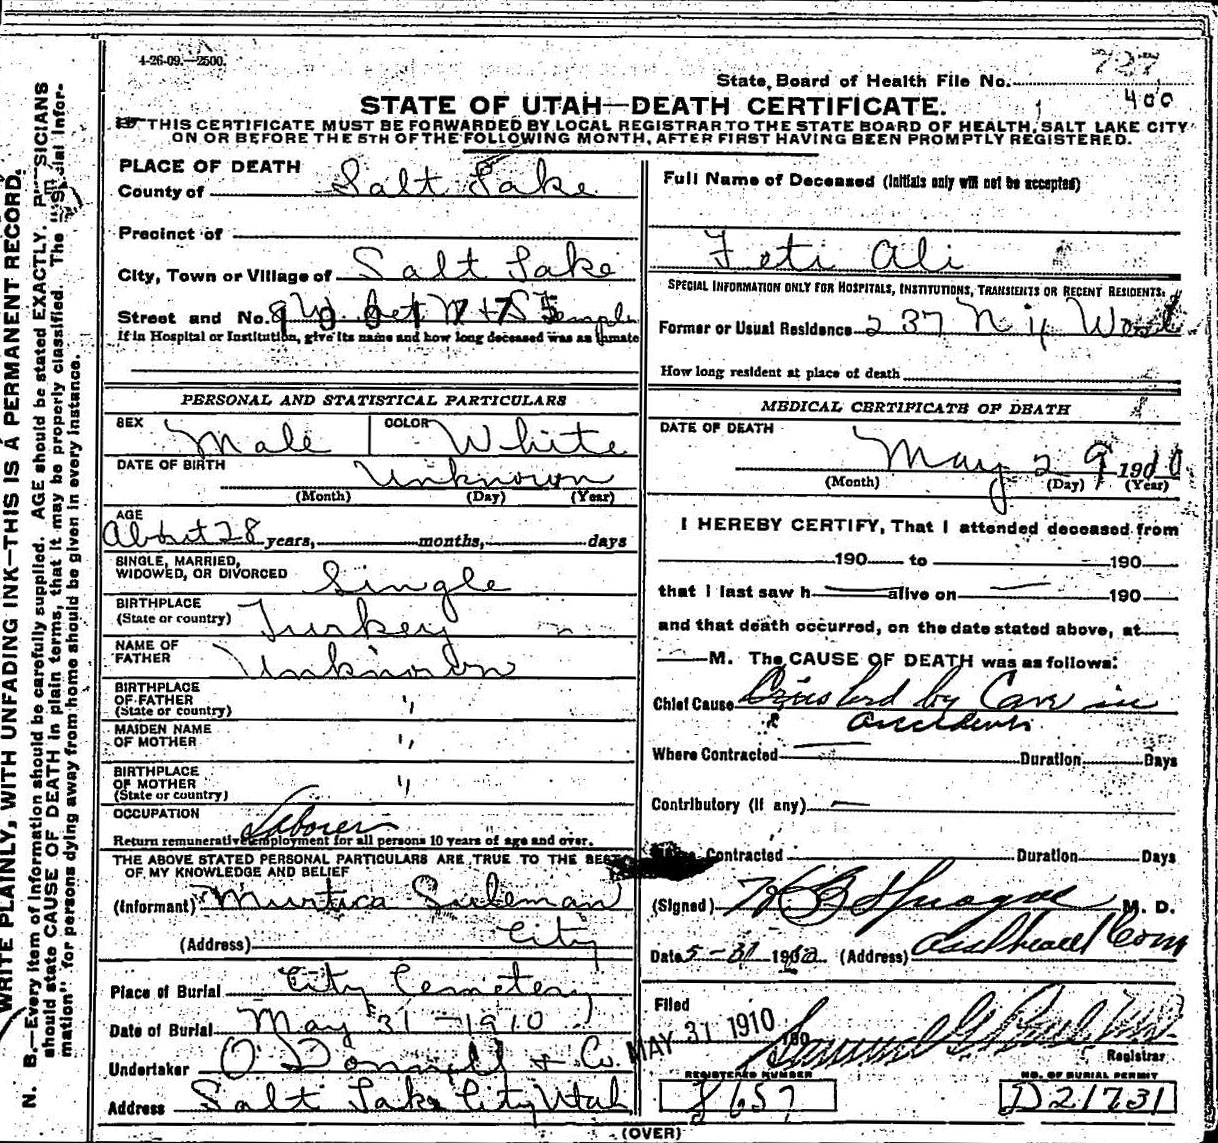 4-26-09.—2500.
State Board of Health File No. 727
400
STATE OF UTAH—DEATH CERTIFICATE.
THIS CERTIFICATE MUST BE FORWARDED BY LOCAL REGISTRAR TO THE STATE BOARD OF HEALTH, SALT LAKE CITY
ON OR BEFORE THE 5TH OF THE FOLLOWING MONTH, AFTER FIRST HAVING BEEN PROMPTLY REGISTERED.
WRITE PLAINLY, WITH UNFADING INK—THIS IS A PERMANENT RECORD.
N. B.—Every item of information should be carefully supplied. AGE should be stated EXACTLY. PHYSICIANS
should state CAUSE OF DEATH in plain terms, that it may be properly classified. The "Special Infor-
mation" for persons dying away from home should be given in every instance.
PLACE OF DEATH
County of Salt Lake
Precinct of
City, Town or Village of Salt Lake
Street and No. 8 W. bet N + S Temple
If in Hospital or Institution, give its name and how long deceased was an inmate
PERSONAL AND STATISTICAL PARTICULARS
SEX Male COLOR White
DATE OF BIRTH Unknown
(Month) (Day) (Year)
AGE
About 28 years, months, days
SINGLE, MARRIED,
WIDOWED, OR DIVORCED Single
BIRTHPLACE
(State or country) Turkey
NAME OF
FATHER Unknown
BIRTHPLACE
OF FATHER
(State or country) "
MAIDEN NAME
OF MOTHER "
BIRTHPLACE
OF MOTHER
(State or country) "
OCCUPATION Laborer
Return remunerative employment for all persons 10 years of age and over.
THE ABOVE STATED PERSONAL PARTICULARS ARE TRUE TO THE BEST
OF MY KNOWLEDGE AND BELIEF
(Informant) Murtica Suleman
(Address) City
Place of Burial City Cemetery
Date of Burial May 31 - 1910
Undertaker O'Donnell + Co.
Address Salt Lake City Utah
Full Name of Deceased (Initials only will not be accepted)
Feti Ali
SPECIAL INFORMATION ONLY FOR HOSPITALS, INSTITUTIONS, TRANSIENTS OR RECENT RESIDENTS.
Former or Usual Residence 237 N 4 West
How long resident at place of death
MEDICAL CERTIFICATE OF DEATH
DATE OF DEATH
May 29 1910
(Month) (Day) (Year)
I HEREBY CERTIFY, That I attended deceased from
190 to 190
that I last saw h alive on 190
and that death occurred, on the date stated above, at
M. The CAUSE OF DEATH was as follows:
Chief Cause Crushed by Cave in
accident
Where Contracted Duration Days
Contributory (if any)
Contracted Duration Days
(Signed) Sprague M. D.
Date 5-31-1910 (Address)
Filed
MAY 31 1910
190
Samuel G. Paul
Registrar
REGISTERED NUMBER
J 657
NO. OF BURIAL PERMIT
D21731
(OVER)